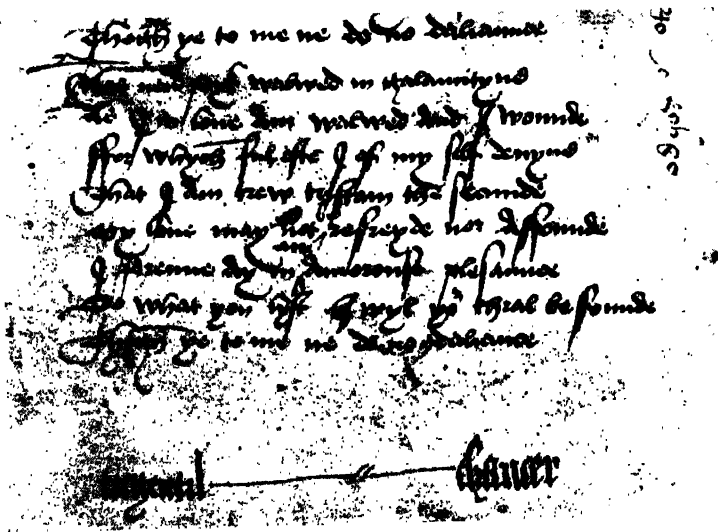 Thogh ye to me ne do no daliaunce
Nas neuer pyk walwed in galauntyne
As I in loue am walwed and I wounde
ffor whych ful ofte I of my self deuyne
That I am trew tristam the secunde
My loue may not refreyde nor affounde
I brenne ay in an amorouse plesaunce
Do what you lyst I wyl yor thral be founde
Thogh ye to me ne do no daliance
tregentil chaucer